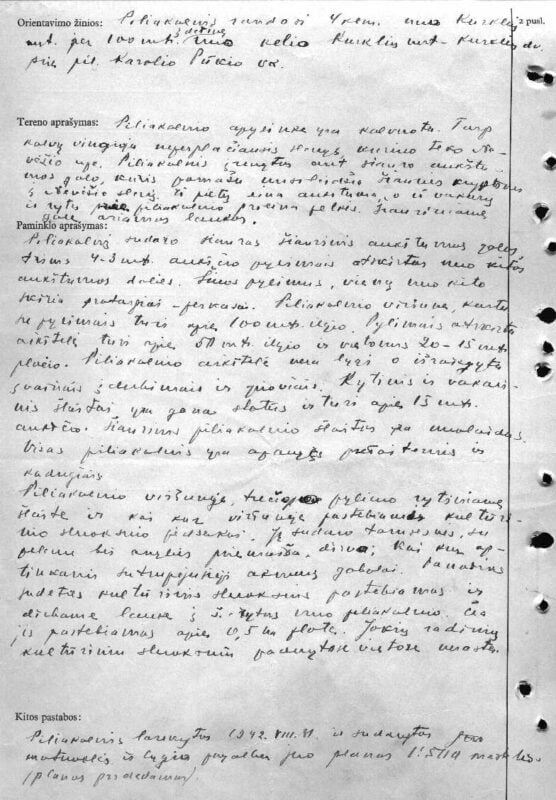 Orientavimo žinios: Piliakalnis randasi 4 klm. nuo Kurklių 2 pusl.
mt. per 100 mt. į dešinę nuo kelio Kurklių mt - Kurklių dv.
prie pil. Karolio Pūkio vk.
Tereno aprašymas: Piliakalnio apylinkė yra kalvuota. Tarp
kalvų vingiuoja neperplačiausis slėnys, kuriuo teka
upė. Piliakalnis įrengtas ant siauro aukštu-
mos galo, kuris pamažu nusileidžia šiaurės kryptimi
į slėnį. Iš pietų eina aukštuma, o iš vakarų
ir rytų piliakalnio prieina pelkės. Šiauriniame
gale ariamos laukas.
Paminklo aprašymas:
Piliakalnį sudaro siauras šiaurinis aukštumos galas,
trimis 4-3 mt. aukščio pylimais atskirtas nuo kitos
aukštumos dalies. Šiuos pylimus, vieną nuo kito
skiria - perkasai. Piliakalnio viršūnė, kartu
su pylimais turi apie 100 mt. ilgio. Pylimais atskirta
aikštelė turi apie 50 mt. ilgio ir vietomis 20-15 mt.
pločio. Piliakalnio aikštelė nėra lygi o išraižyta
įvairiais įdubimais ir grioviais. Rytinis ir vakari-
nis šlaitai yra gana status ir turi apie 15 mt.
aukščio. Šiaurinis piliakalnio šlaitas yra nuolaidus.
Visas piliakalnis yra apaugęs ir
kadugiais
Piliakalnio viršūnėje, trečiojo pylimo rytiniame
šlaite ir kai kur viršūnėje pastebimas kultūri-
nio sluoksnio Jį sudaro tamsesnė, su
pelenu bei anglies priemaiša, dirva; kai kur ap-
tinkamis sutrupėjusieji akmenų gabalai. Panašios
sudėties kultūrinis sluoksnis pastebimas ir
dirbame lauke į š. rytus nuo piliakalnio. Čia
jis pastebimas apie 0,5 ha plote. Jokių radinių
kultūriniu sluoksniu padengtose vietose nerasta.
Kitos pastabos:
Piliakalnis lankytas 1942.VIII.31. ir sudarytas
matuoklės ir pagalba jo planas 1:500
/planas pridedamas/.